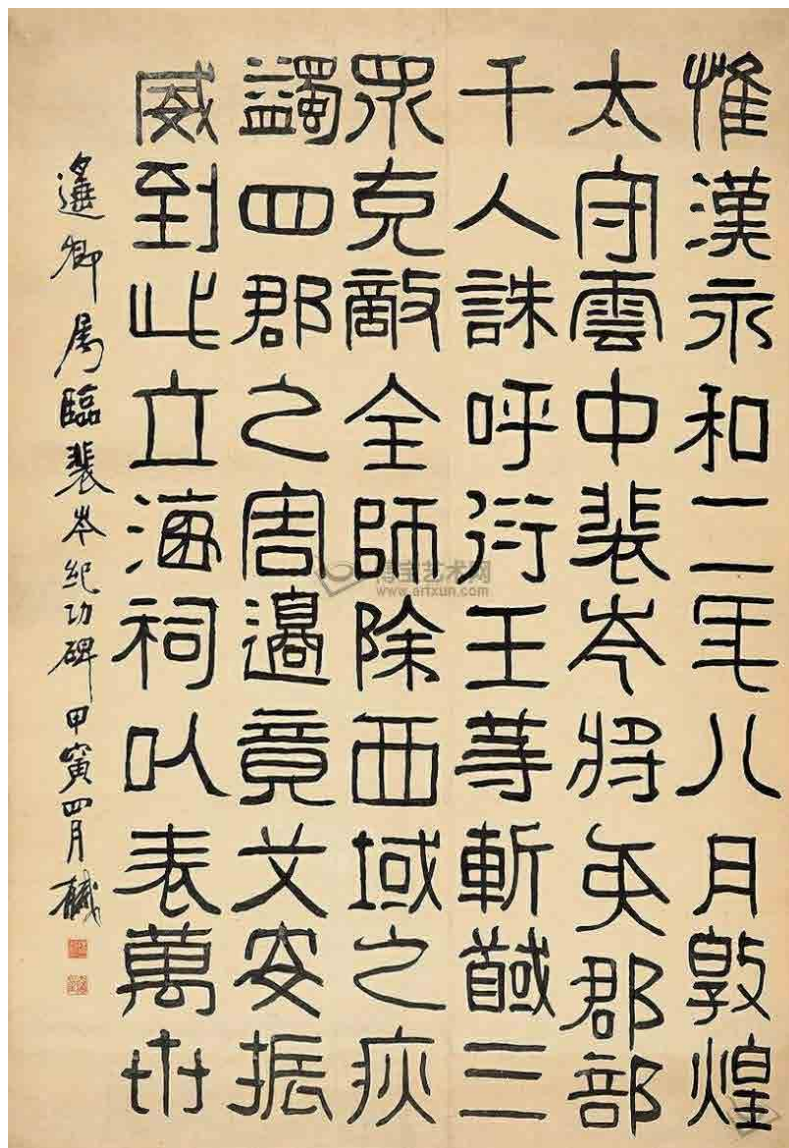 惟漢永和二年八月敦煌
太守雲中裴岑將兵郡部
千人誅呼衍王等斬馘三
眾克敵全師除西域之疢
蠲四郡之害邊竟艾安振
威到此立海祠以表萬世
卿屬臨裴岑紀功碑甲寅四月
博宝艺术网
www.artxun.com